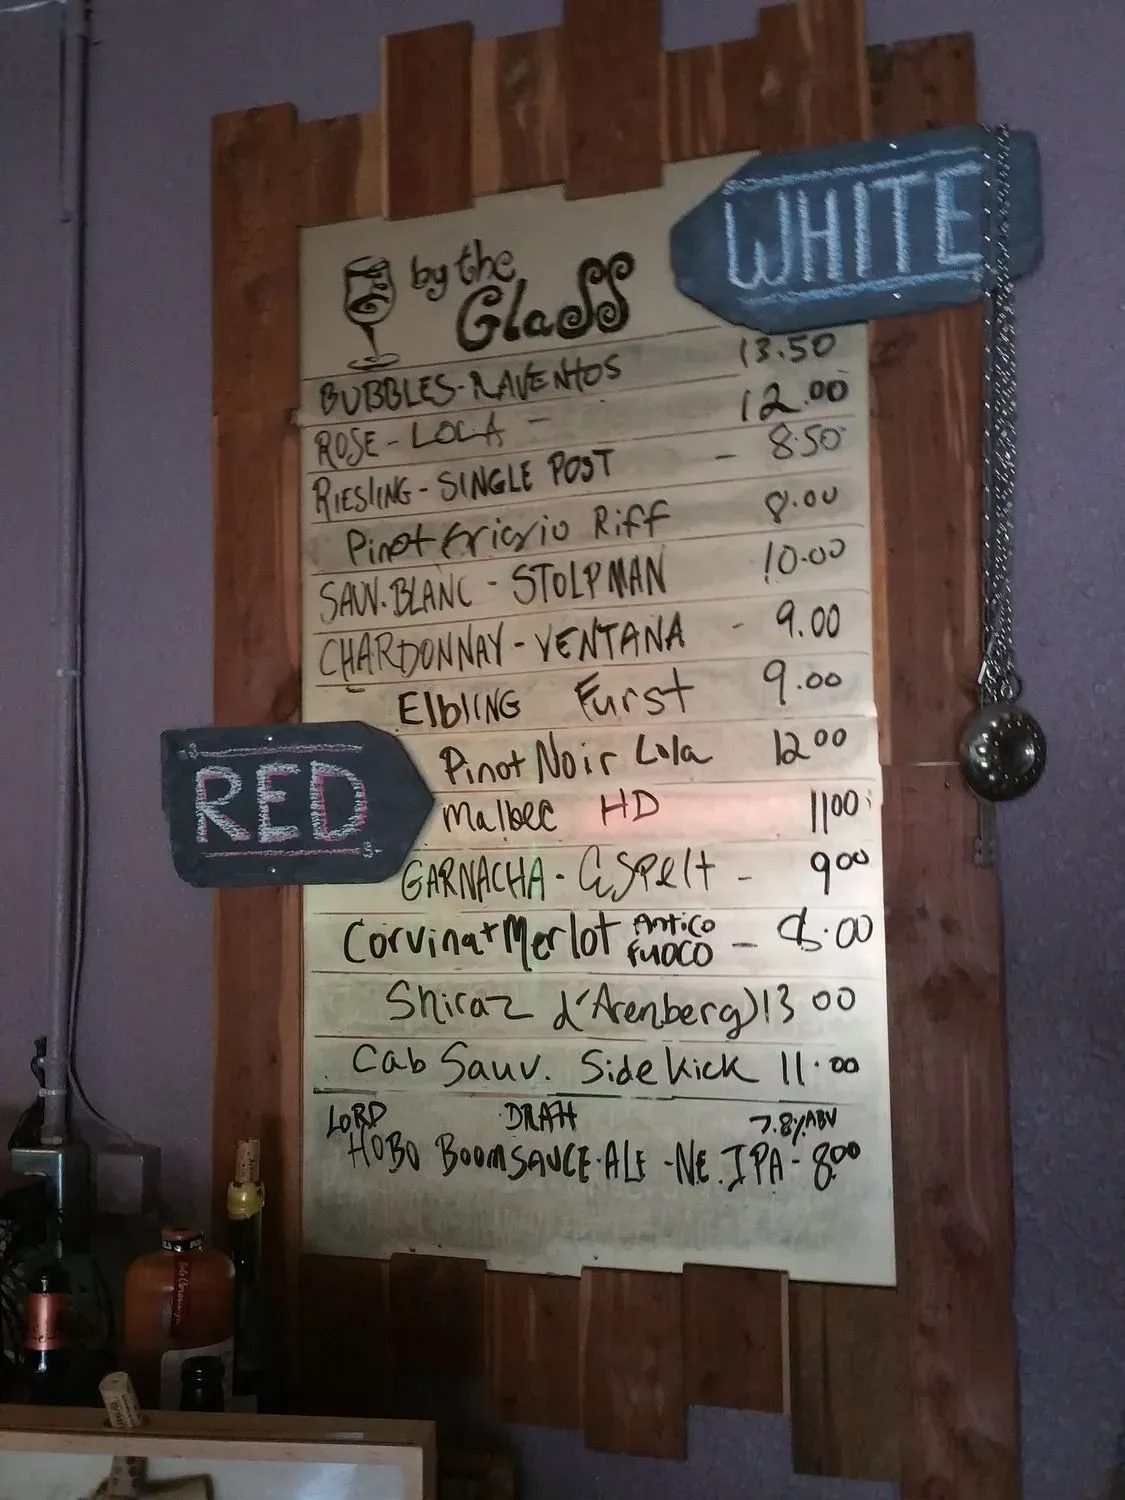 WHITE
by the
Glass
BUBBLES - RAVENTOS 13.50
ROSE - LOLA - 12.00
RIESLING - SINGLE POST - 8.50
Pinot Grigrio Riff 8.00
SAUV. BLANC - STOLPMAN 10.00
CHARDONNAY - VENTANA - 9.00
ElblING Furst 9.00
RED
Pinot Noir Lola 12 00
Malbec HD 11 00
GARNACHA - Espelt - 9 00
Corvina + Merlot Antico Fuoco - 8.00
Shiraz d'Arenberg) 13 00
Cab Sauv. Sidekick 11.00
LORD DRAft 7.8% ABV
HOBO BOOMSAUCE - ALE - NE. IPA - 8 00